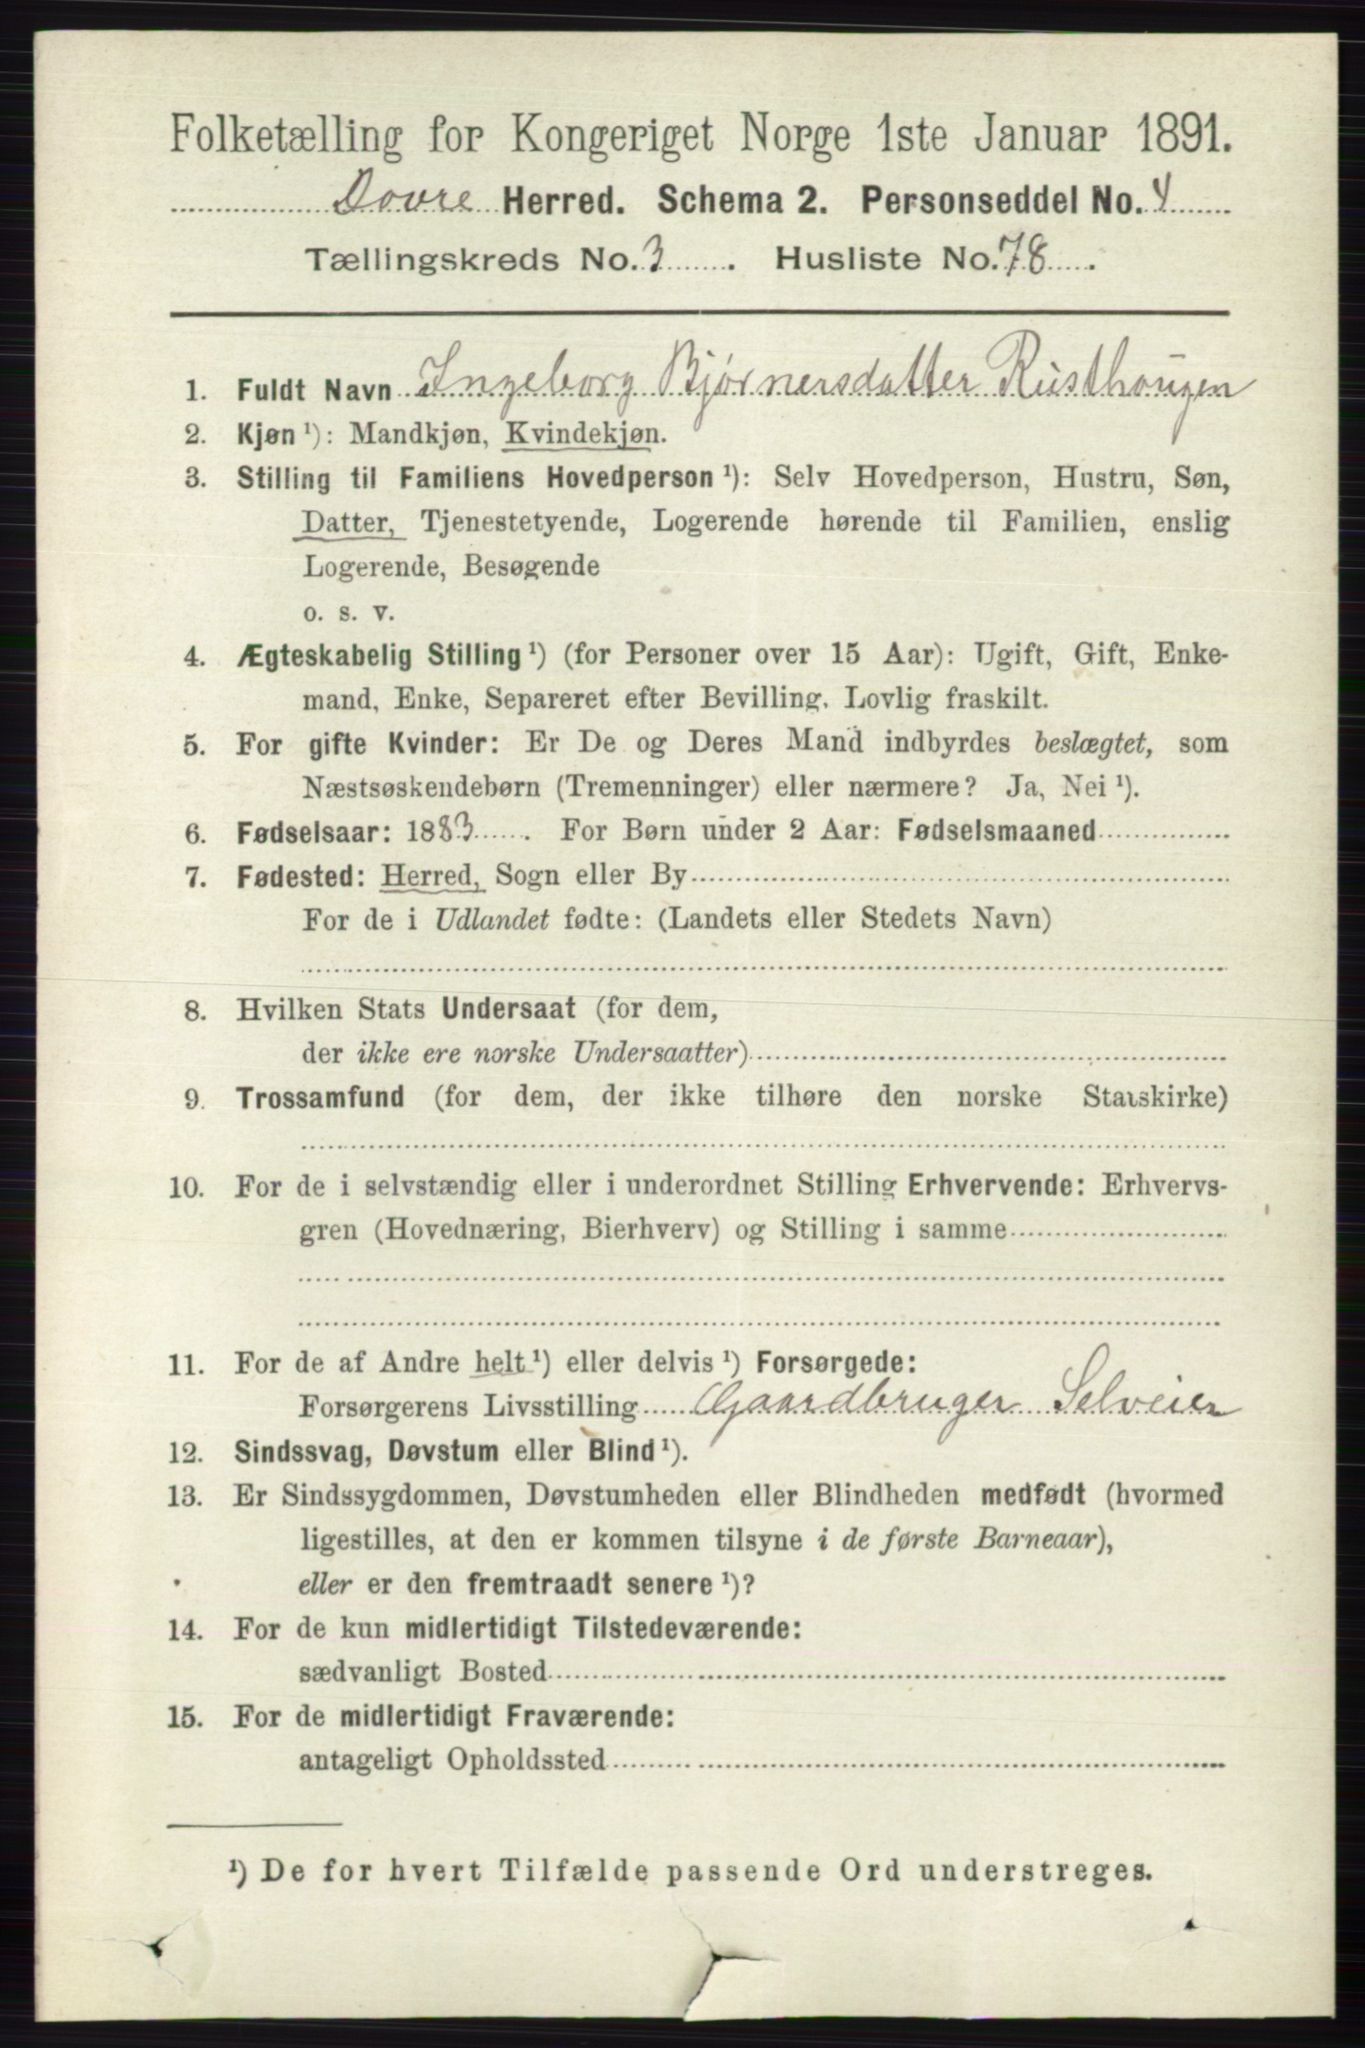 Folketælling for Kongeriget Norge 1ste Januar 1891.
Dovre Herred. Schema 2. Personseddel No. 4
Tællingskreds No. 3. Husliste No. 78.
1. Fuldt Navn Ingeborg Bjørnersdatter Rusthougen
2. Kjøn ¹): Mandkjøn, Kvindekjøn.
3. Stilling til Familiens Hovedperson ¹): Selv Hovedperson, Hustru, Søn,
Datter, Tjenestetyende, Logerende hørende til Familien, enslig
Logerende, Besøgende
o. s. v.
4. Ægteskabelig Stilling ¹) (for Personer over 15 Aar): Ugift, Gift, Enke-
mand, Enke, Separeret efter Bevilling. Lovlig fraskilt.
5. For gifte Kvinder: Er De og Deres Mand indbyrdes beslægtet, som
Næstsøskendebørn (Tremenninger) eller nærmere? Ja, Nei ¹).
6. Fødselsaar: 1883. For Børn under 2 Aar: Fødselsmaaned
7. Fødested: Herred, Sogn eller By
For de i Udlandet fødte: (Landets eller Stedets Navn)
8. Hvilken Stats Undersaat (for dem,
der ikke ere norske Undersaatter)
9. Trossamfund (for dem, der ikke tilhøre den norske Statskirke)
10. For de i selvstændig eller i underordnet Stilling Erhvervende: Erhvervs-
gren (Hovednæring, Bierhverv) og Stilling i samme
11. For de af Andre helt ¹) eller delvis ¹) Forsørgede:
Forsørgerens Livsstilling Gaardbruger Selveier
12. Sindssvag, Døvstum eller Blind ¹).
13. Er Sindssygdommen, Døvstumheden eller Blindheden medfødt (hvormed
ligestilles, at den er kommen tilsyne i de første Barneaar),
eller er den fremtraadt senere ¹)?
14. For de kun midlertidigt Tilstedeværende:
sædvanligt Bosted
15. For de midlertidigt Fraværende:
antageligt Opholdssted
¹) De for hvert Tilfælde passende Ord understreges.